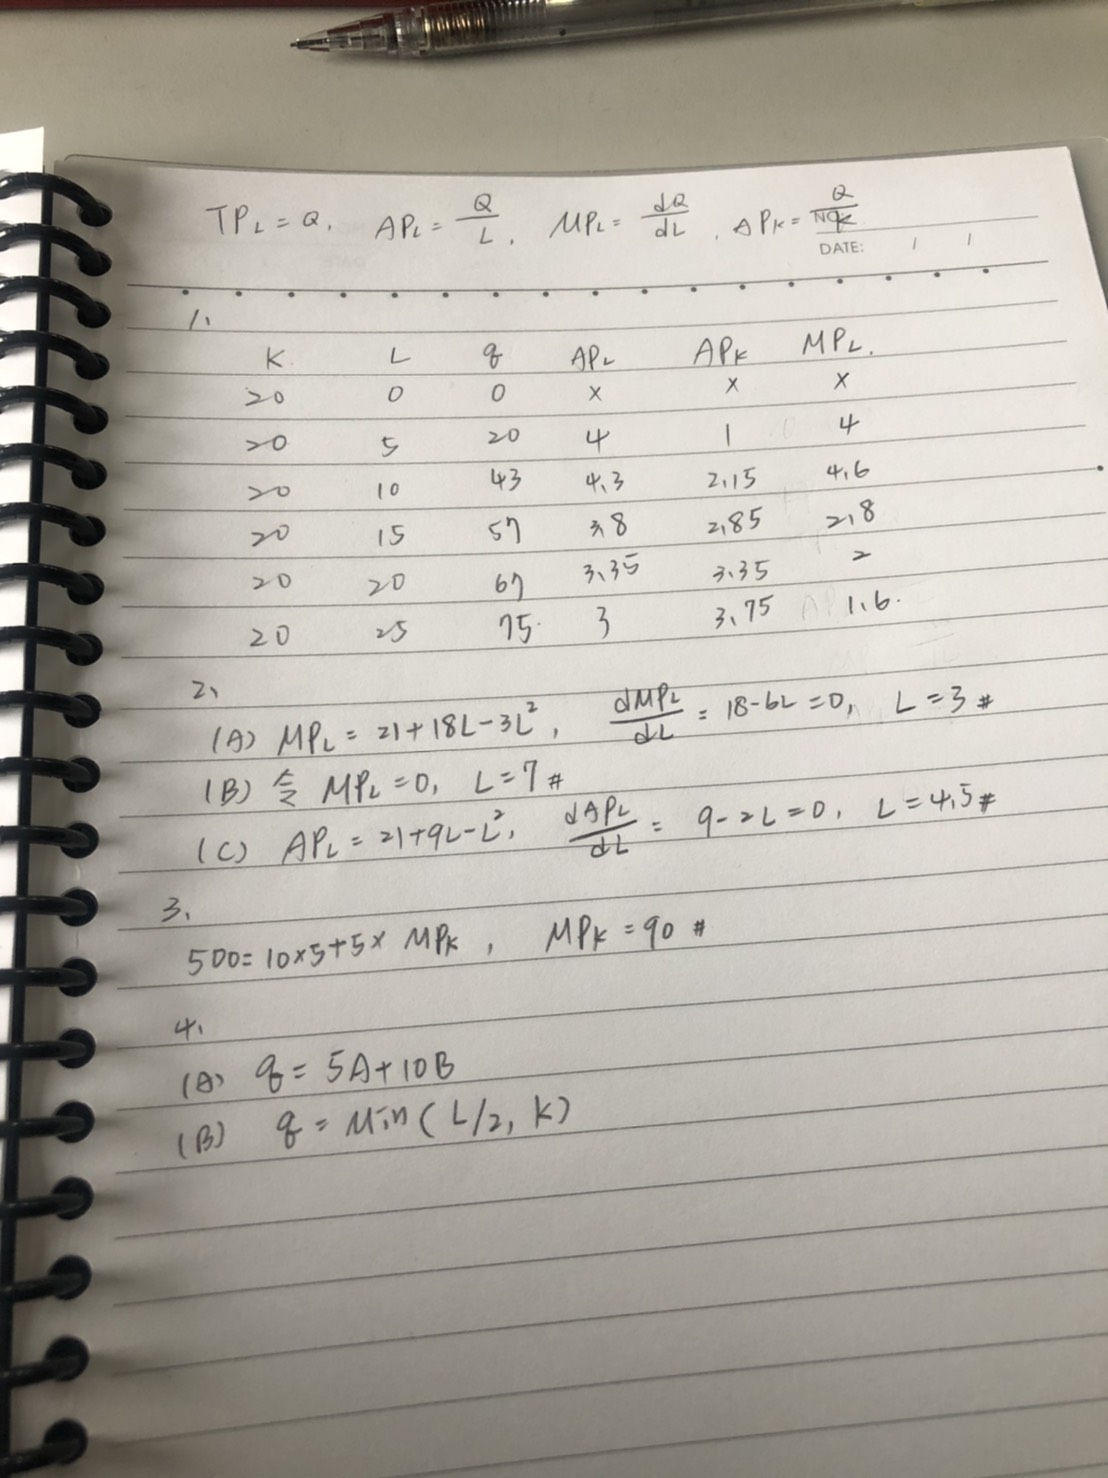 TPL = Q, APL = Q/L, MPL = dQ/dL, APK = Q/K
NO.
DATE: / /
1.
K L q APL APK MPL.
20 0 0 x x x
20 5 20 4 1 4
20 10 43 4.3 2.15 4.6
20 15 57 3.8 2.85 2.8
20 20 67 3.35 3.35 2
20 25 75. 3 3.75 1.6.
2.
(A) MPL = 21+18L-3L², dMPL/dL = 18-6L=0, L=3 #
(B) 令 MPL=0, L=7 #
(C) APL = 21+9L-L², dAPL/dL = 9-2L=0, L=4.5#
3.
500=10x5+5x MPK, MPK=90 #
4.
(A) q = 5A+10B
(B) q = Min(L/2, K)